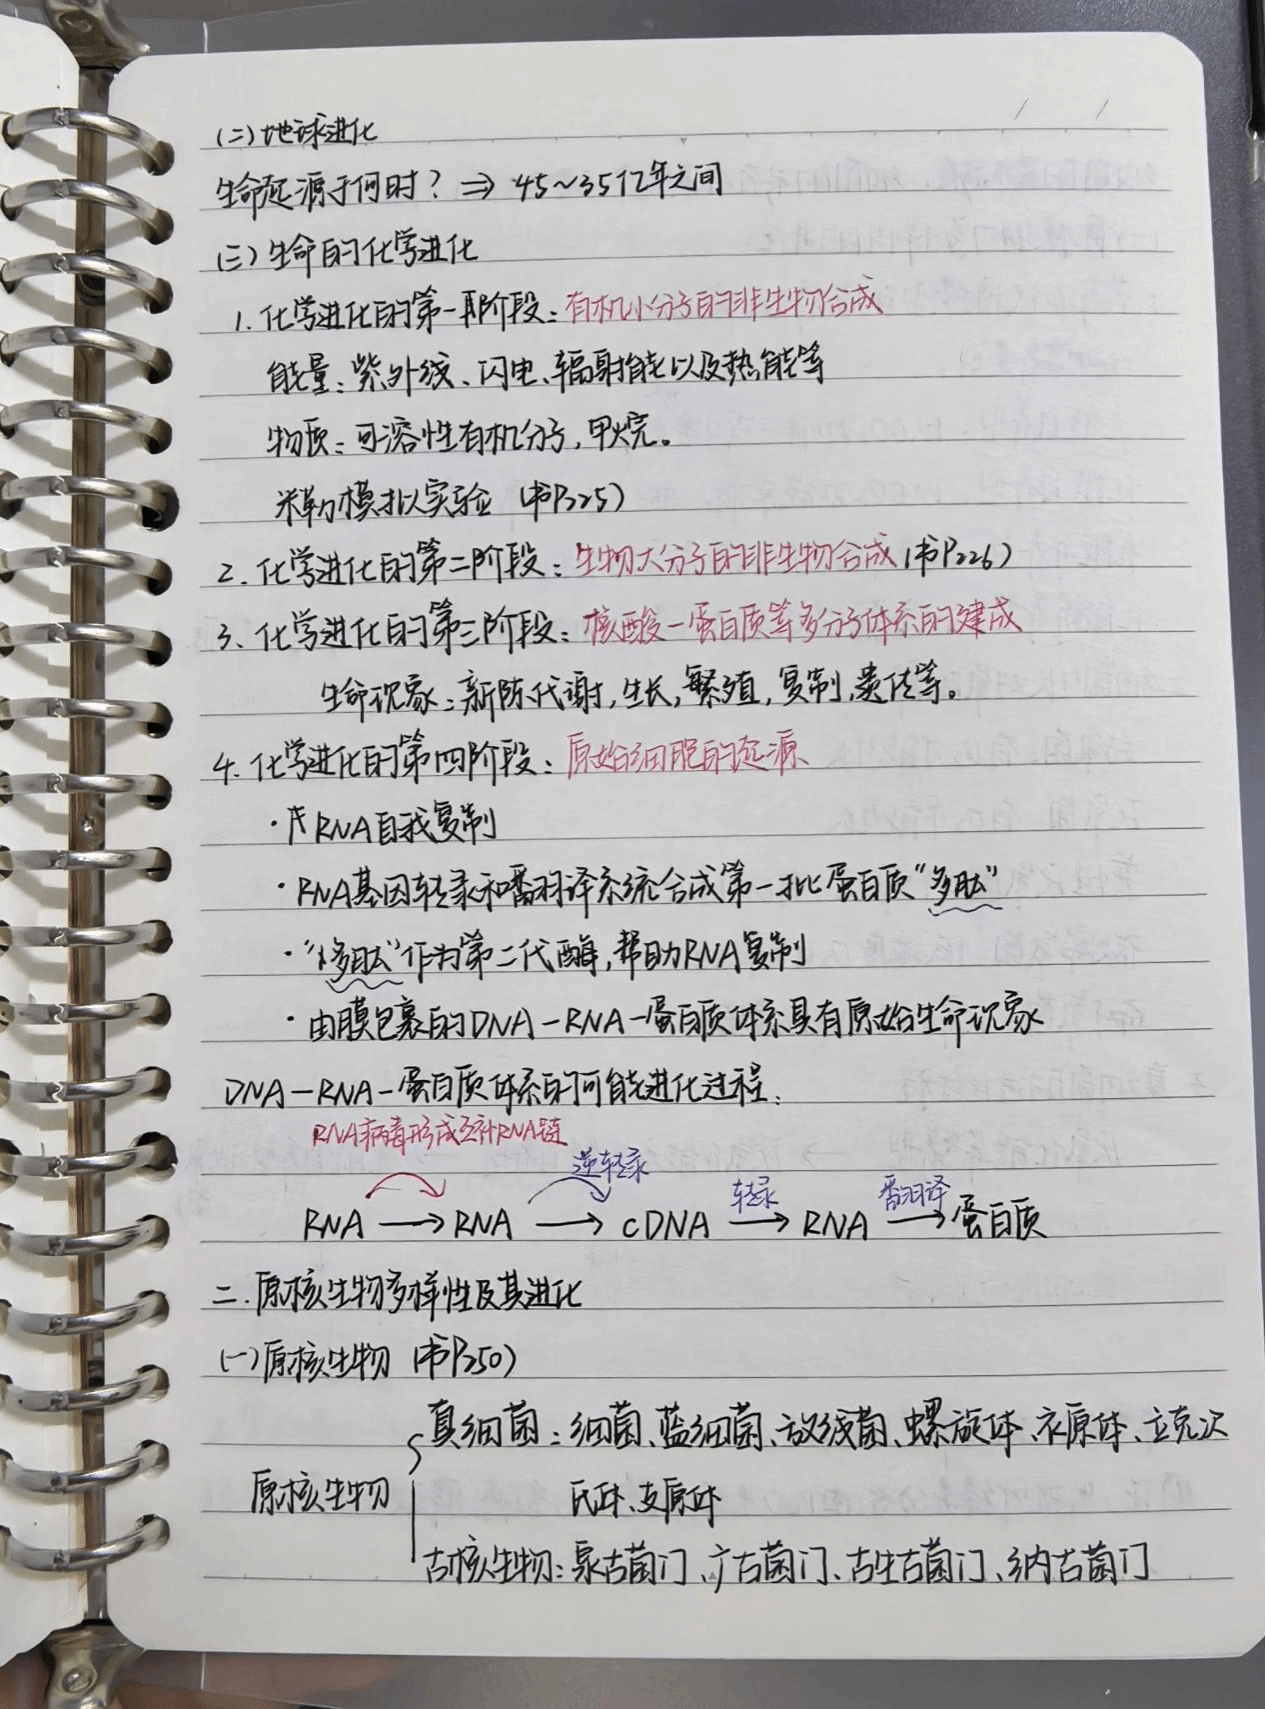 (二)地球进化
生命起源于何时? ⇒ 45~35亿年之间
(三)生命的化学进化
1. 化学进化的第一阶段:有机小分子的非生物合成
能量:紫外线、闪电、辐射能以及热能等
物质:可溶性有机分子,甲烷。
米勒模拟实验 (书P225)
2. 化学进化的第二阶段:生物大分子的非生物合成(书P226)
3. 化学进化的第三阶段:核酸-蛋白质等多分子体系的建成
生命现象:新陈代谢,生长,繁殖,复制,遗传等。
4. 化学进化的第四阶段:原始细胞的起源
·RNA自我复制
·RNA基因转录和翻译系统合成第一批蛋白质"多肽"
·"多肽"作为第二代酶,帮助RNA复制
·由膜包裹的DNA-RNA-蛋白质体系具有原始生命现象
DNA-RNA-蛋白质体系的可能进化过程:
RNA病毒形成互补RNA链
逆转录 转录 翻译
RNA → RNA → cDNA → RNA → 蛋白质
二.原核生物多样性及其进化
(一)原核生物 (书P250)
真细菌:细菌、蓝细菌、放线菌、螺旋体、衣原体、立克次
原核生物 氏体、支原体
古核生物:泉古菌门、广古菌门、古生古菌门、纳古菌门